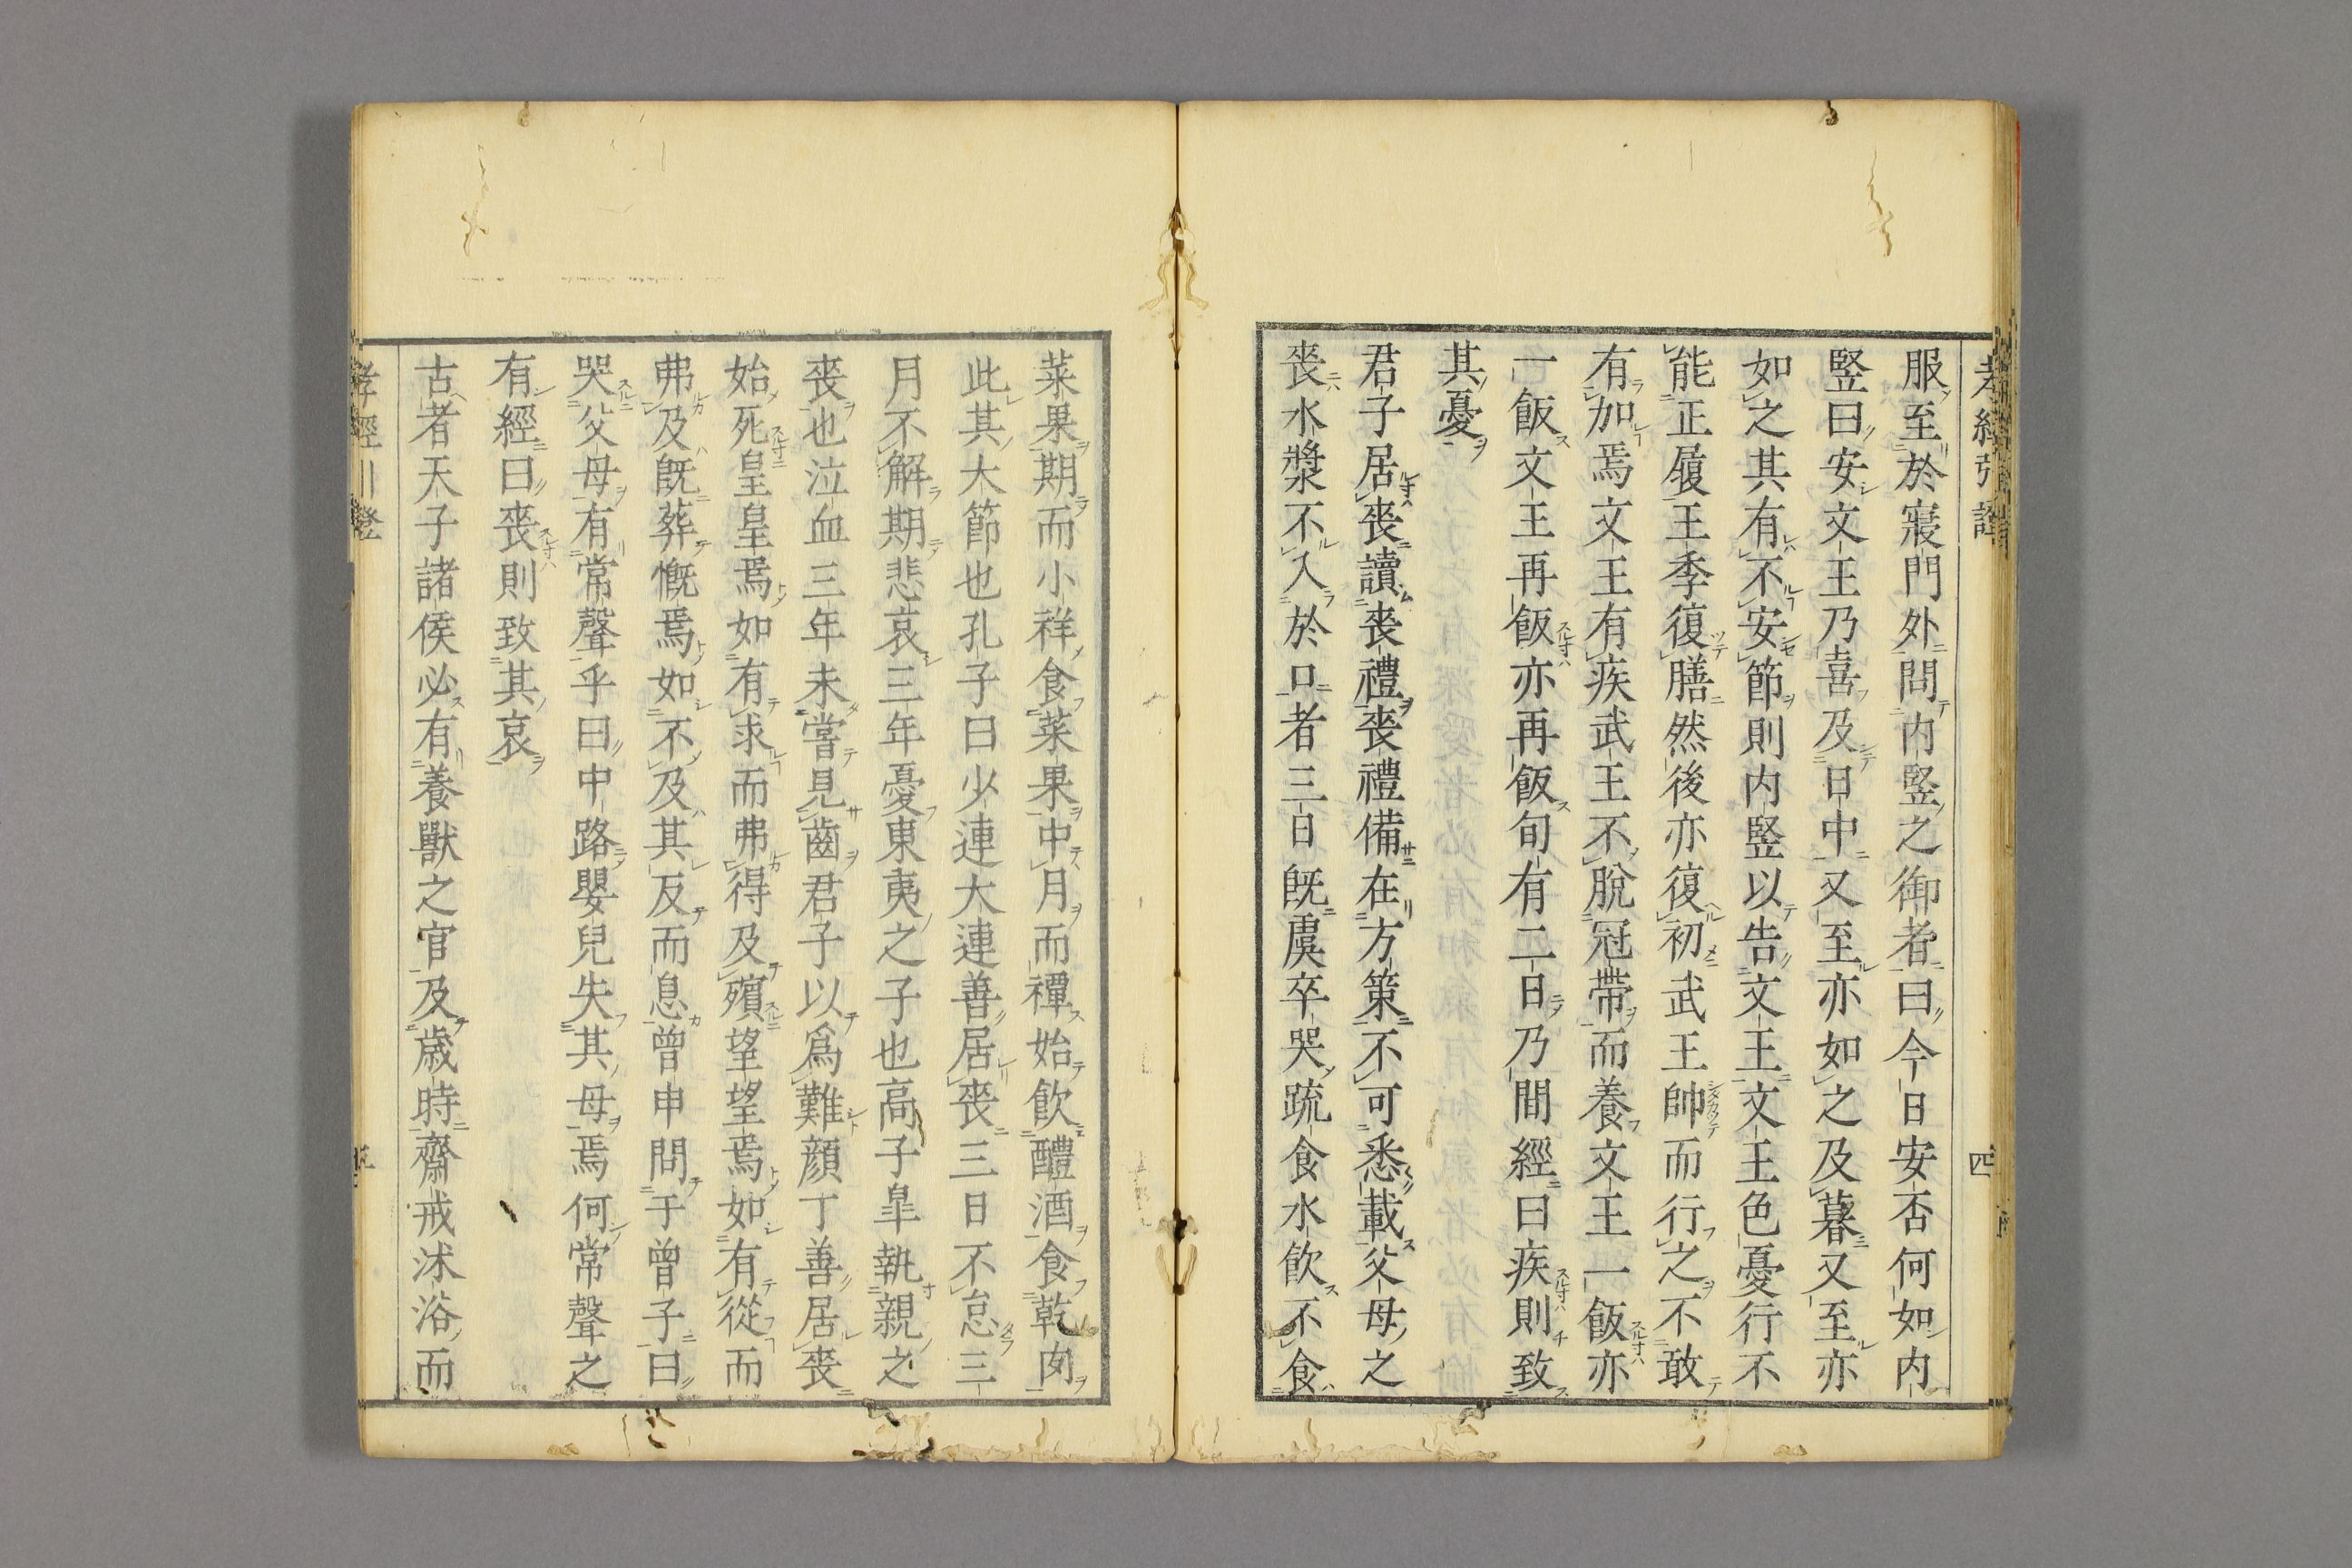 服至於寢門外問内竪之御者曰今日安否何如内
竪曰安文王乃喜及日中又至亦如之及暮又至亦
如之其有不安節則内竪以告文王文王色憂行不
能正履王季復膳然後亦復初武王帥而行之不敢
有加焉文王有疾武王不脫冠帶而養文王一飯亦
一飯文王再飯亦再飯旬有二日乃間經曰疾則致
其憂
君子居喪讀喪禮喪禮備在方策不可悉載父母之
喪水漿不入於口者三日旣虞卒哭疏食水飲不食
菜果期而小祥食菜果中月而禫始飲醴酒食乾肉
此其大節也孔子曰少連大連善居喪三日不怠三
月不解期悲哀三年憂東夷之子也高子皐執親之
喪也泣血三年未嘗見齒君子以爲難顔丁善居喪
始死皇皇焉如有求而弗得及殯望望焉如有從而
弗及旣葬慨焉如不及其反而息曾申問于曾子曰
哭父母有常聲乎曰中路嬰兒失其母焉何常聲之
有經曰喪則致其哀
古者天子諸侯必有養獸之官及歲時齋戒沐浴而